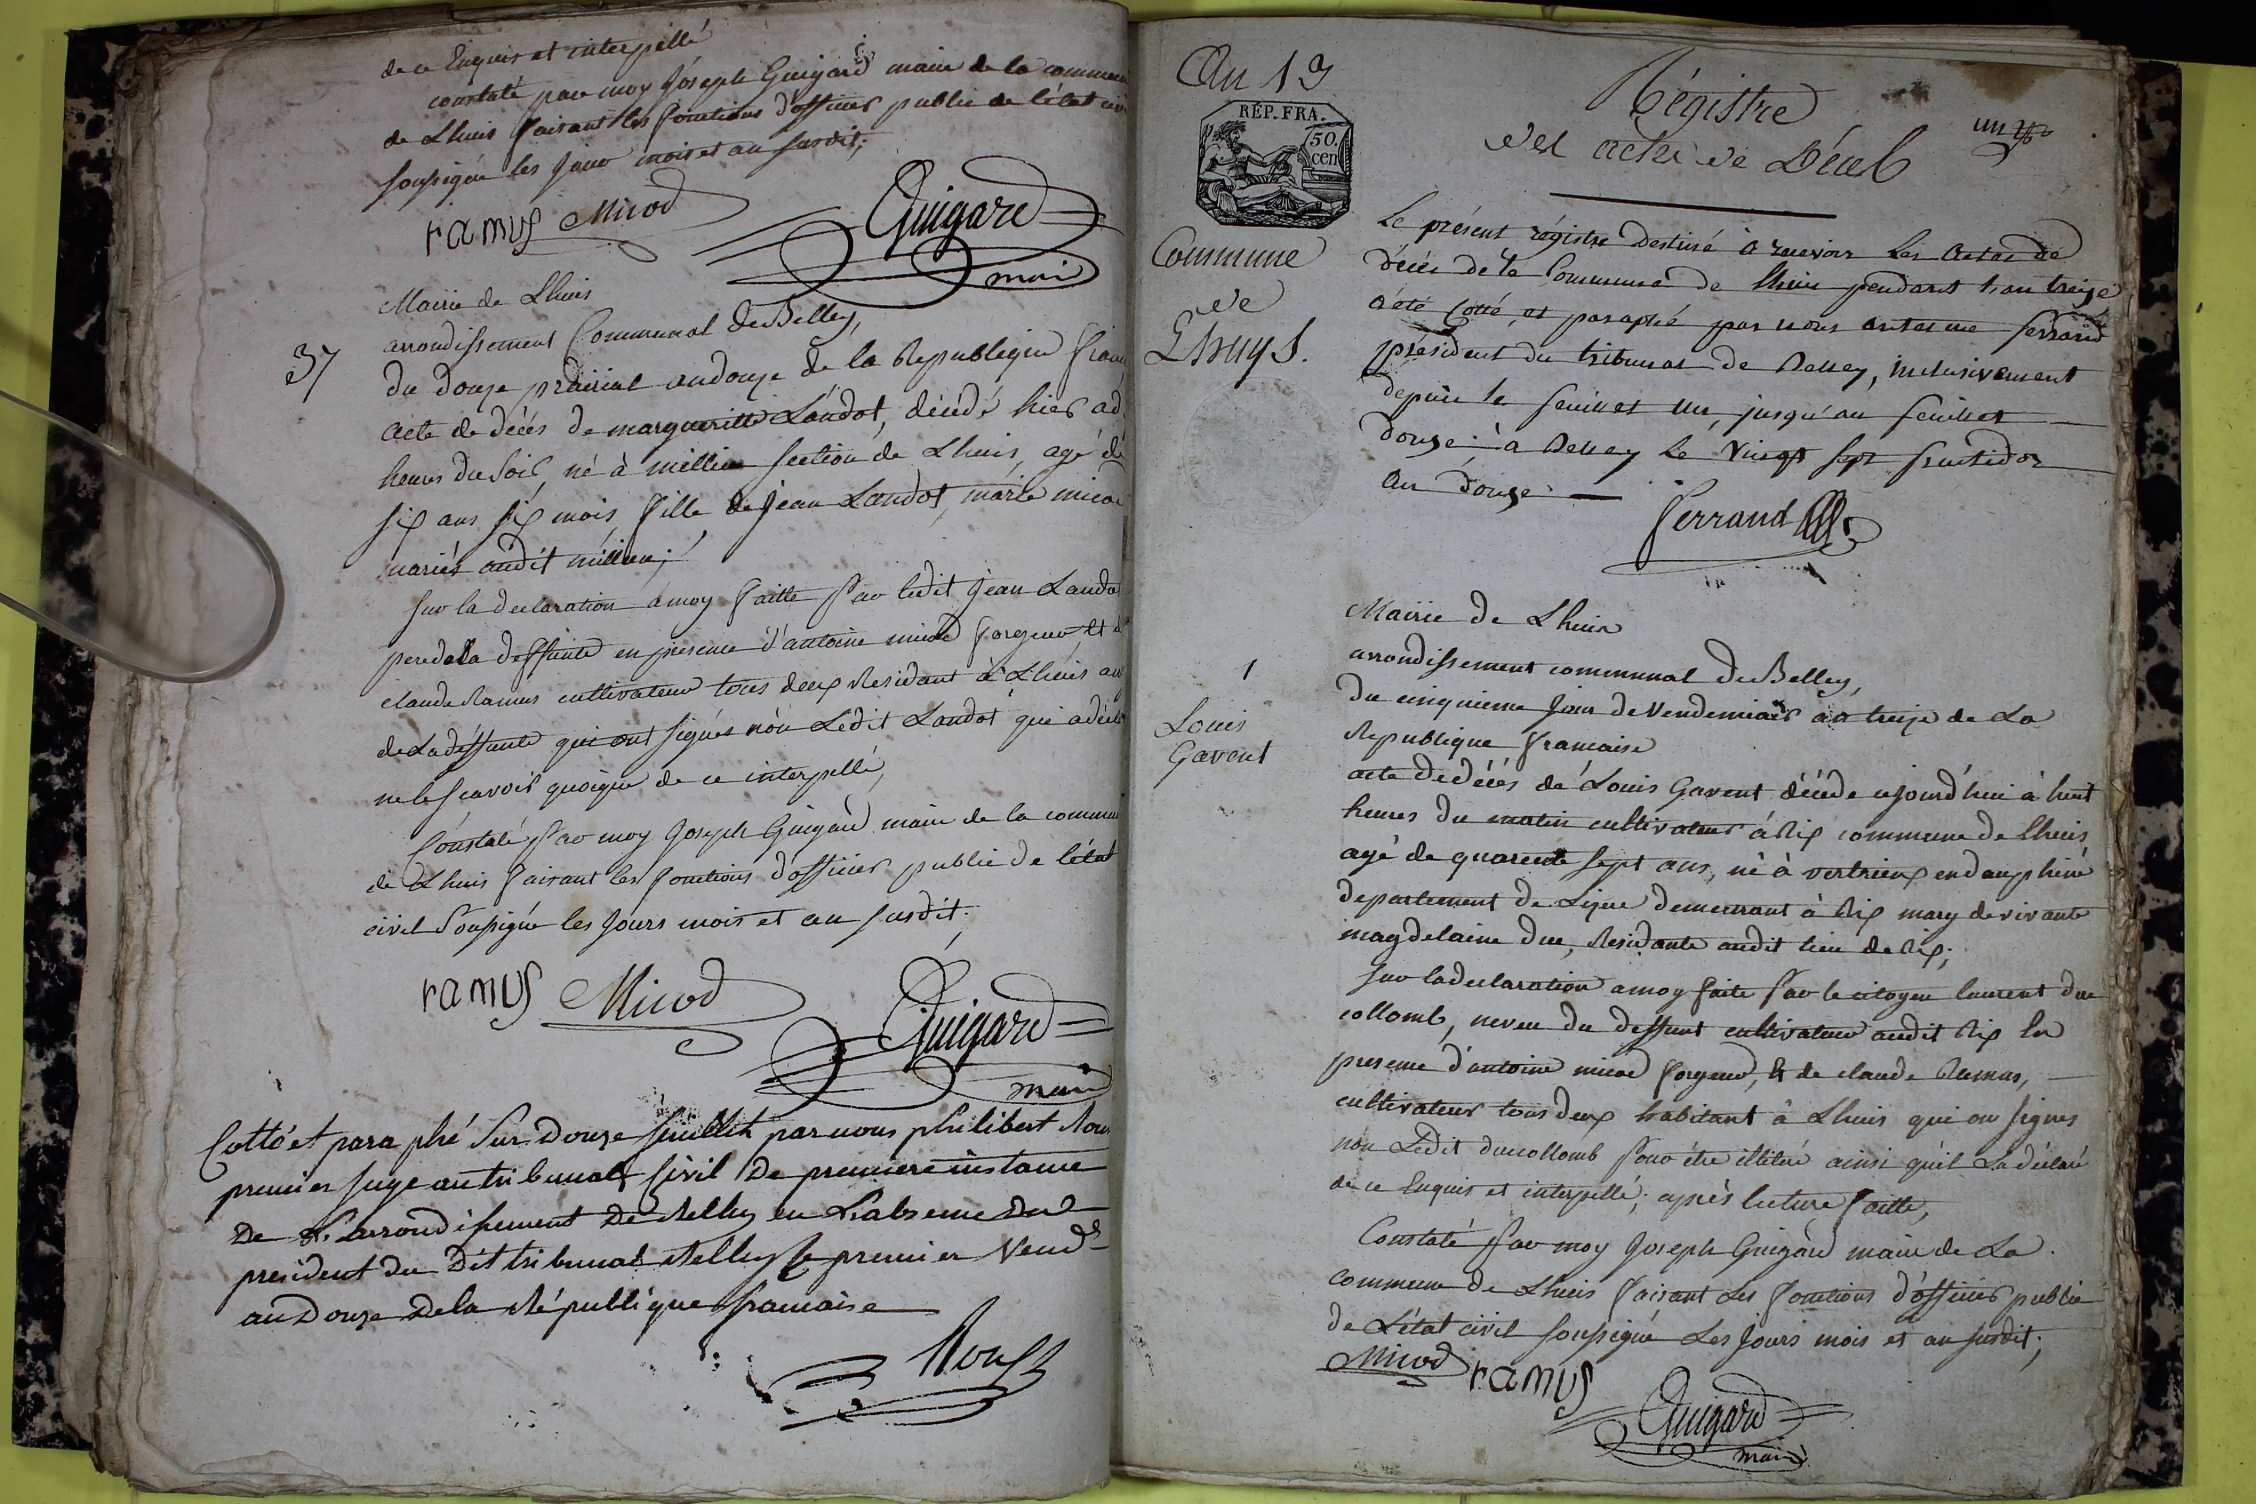 de ce Enquis et interpellé
constaté par moy Joseph Guigard maire de la commune
de Lhuis faisant les fonctions d'officier public de l'état civ
soussigné les jour mois et an susdit;
ramus Micod Guigard
maire
Mairie de Lhuis
arrondissement Communal de Belley,
37
du douze prairial an douze de la Republique franc
acte de décés de margueritte Landot, décédé hier a d
heures du soir, né à millieu section de Lhuis, agé de
six ans six mois, fille de Jean Landot, marie micod
mariés audit millieu;
sur la declaration a moy faitte par ledit Jean Lando
pere de la deffunte en presence d'antoine micod forgeur, et d
claude Ramus cultivateur tous deux Residant à Lhuis
de la deffunte qui ont signés non Ledit Landot qui a décla
ne le scavoir quoique de ce interpellé,
Constaté par moy Joseph Guigard maire de la commu
de Lhuis faisant les fonctions d'officier public de l'état
civil soussigné les jours mois et an susdit.
ramus Micod Guigard
maire
Cotté et paraphé sur Douze feuillets par nous philibert Rou
premier juge au tribunal Civil De premiere instance
De L'arrondissement De Belley en L'absence Du
president du Dit tribunal Belley le premier Vend.re
an Douze De la République francaise
An 13
RÉP. FRA.
50.
cen
Régistre
des actes de Décès
un
Commune
de
Lhuys.
Le présent régistre destiné à recevoir les actes de
décès de la Commune de lhuis pendant l'an treize
a été cotté, et paraphé par nous antelme ferrand
président du tribunal de Belley, inclusivement
depuis le feuillet un, jusqu'au feuillet
douze; à Belley le vingt sept fructidor
an douze.
Ferrand
Mairie de Lhuis
arrondissement communal de Belley,
1
Louis
Gavent
du cinquieme jour de Vendemiaire an treize de La
Republique francaise
acte de décés de Louis Gavent décédé ajourd'hui à huit
heures du matin cultivateur à Rix commune de lhuis
agé de quarente sept ans, né à vertrieux en dauphiné
departement de Lizere demeurant à Rix mary de vivante
magdelaine duc, Residante audit lieu de Rix;
sur la declaration a moy faite par le citoyen laurent duc
collomb, neveu du deffunt cultivateur audit Rix En
presence d'antoine micod forgeur, & de claude Ramus,
cultivateur tous deux habitant à Lhuis qui on signes
non Ledit duccollomb pour être illiteré ainsi qu'il La déclaré
de ce Enquis et interpellé; après lecture faitte,
Constaté par moy Joseph Guigard maire de La
commune de Lhuis faisant Les fonctions d'officier public
de L'état civil soussigné Les jours mois et an susdit;
Micod ramus
Guigard
maire